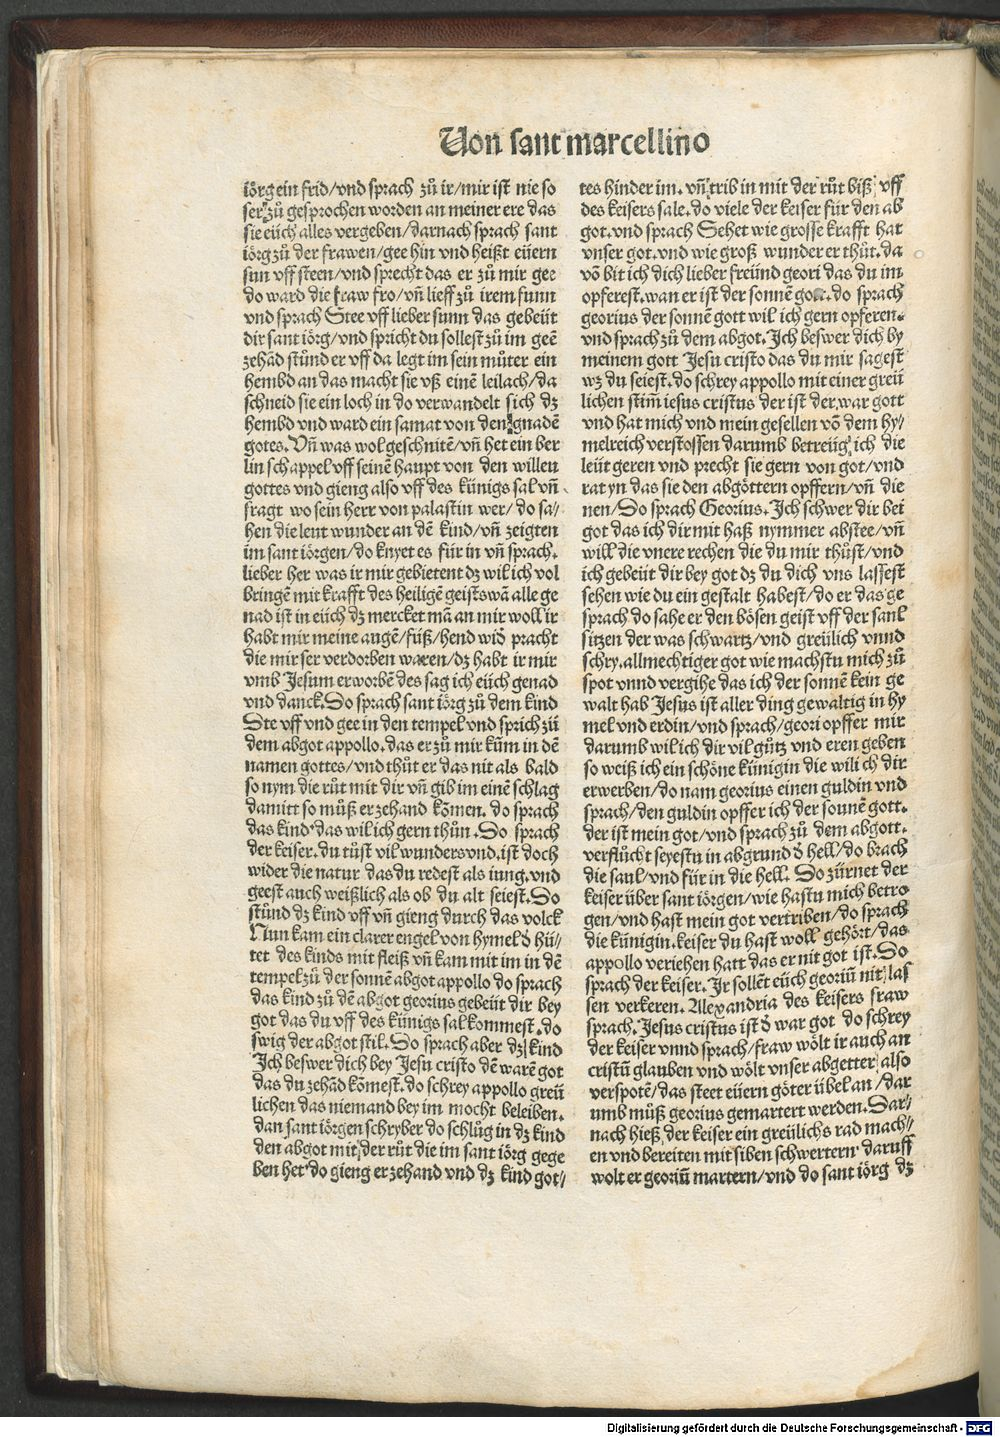 Von sant marcellino
iörg ein frid/vnd sprach zů ir/mir ist nie so
ser zů gesprochen worden an meiner ere das
sie eüch alles vergeben/darnach sprach sant
iörg zů der frawen/gee hin vnd heißt eüern
sun vff steen/vnd sprecht das er zů mir gee
do ward die fraw fro/vñ lieff zů irem sunn
vnd sprach Stee vff lieber sunn das gebeüt
dir sant iörg/vnd spricht du sollest zů im geē
zehād stůnd er vff da legt im sein můter ein
hembd an das macht sie vß einē leilach/da
schneid sie ein loch in do verwandelt sich dz
hembd vnd ward ein samat von den gnadē
gotes. Vñ was wol geschnitē/vñ het ein ber
lin schappel vff seinē haupt von den willeu
gottes vnd gieng also vff des künigs sal vñ
fragt wo sein herr von palastin wer/do sa/
hen die leut wunder an dē kind/vñ zeigten
im sant iörgen/do knyet es für in vñ sprach.
lieber her was ir mir gebietent dz wil ich vol
bringē mit krafft des heiligē geists wā alle ge
nad ist in eüch dz mercket mā an mir woll ir
habt mir meine augē/füß/hend wid̕ pracht
die mir ser verdorben waren/dz habt ir mir
vmb Jesum erworbē des sag ich eüch genad
vnd danck. Do sprach sant iörg zů dem kind
Ste vff vnd gee in den tempel vnd sprich zů
dem abgot appollo. das er zů mir kūm in dē
namen gottes/vnd thůt er das nit als bald
so nym die růt mit dir vñ gib im einē schlag
damitt so můß er zehand kōmen. do sprach
das kind das wil ich gern thůn. Do sprach
der keiser. du tüst vil wunders vnd. ist doch
wider die natur das du redest als iung. vnd
geest auch weißlich als ob du alt seiest. Do
stůnd dz kind vff vñ gieng durch das volck
Nun kam ein clarer engel von hymel d̕ hü//
tet des kinds mit fleiß vñ kam mit im in dē
tempel zů der sonnē abgot appollo do sprach
das kind zů dē abgot georius gebeüt dir bey
got das du vff des künigs sal kommest. do
swig der abgot stil. Do sprach aber dz kind
Ich beswer dich bey Jesu cristo dē warē got
das du zehād kōmest. do schrey appollo greü
lichen das niemand bey im mocht beleiben.
dan sant iörgen schryber do schlůg in dz kind
den abgot mit der růt die im sant iörg gege
ben het do gieng er zehand vnd dz kind got//
tes hinder im. vñ trib in mit der růt biß vff
des keisers sale. do viele der keiser für den ab
got. vnd sprach Sehet wie grosse krafft hat
vnser got. vnd wie groß wunder er thůt. da
vō bit ich dich lieber freünd geori das du im
opferest. wan er ist der sonnē got. do sprach
georius der sonnē gott wil ich gern opferen.
vnd sprach zů dem abgot. Ich beswer dich by
meinem gott Jesu cristo das du mir sagest
wz du seiest. do schrey appollo mit einer greü
lichen stim̄ iesus cristus der ist der war gott
vnd hat mich vnd mein gesellen vō dem hy/
melreich verstossen darumb betreüg ich die
leüt geren vnd precht sie gern von got/vnd
rat yn das sie den abgöttern opffern/vñ die
nen/Do sprach Georius. Ich schwer dir bei
got das ich dir mit haß nymmer abstee/vñ
will die vnere rechen die du mir thůst/vnd
ich gebeüt dir bey got dz du dich vns lassest
sehen wie du ein gestalt habest/do er das ge
sprach do sahe er den bösen geist vff der saul
sitzen der was schwartz/vnd greülich vnnd
schry. allmechtiger got wie machstu mich zů
spot vnnd vergihe das ich der sonnē kein ge
walt hab Jesus ist aller ding gewaltig in hy
mel vnd erdin/vnd sprach/geori opffer mir
darumb wil ich dir vil gůtz vnd eren geben
so weiß ich ein schöne künigin die wili ch dir
erwerben/do nam georius einen guldin vnd
sprach/den guldin opffer ich der sonnē gott.
der ist mein got/vnd sprach zů dem abgott.
verflůcht seyestu in abgrund d̕ hell/do brach
die saul/vnd für in die hell. Do zürnet der
keiser über sant iörgen/wie hastu mich betro
gen/vnd hast mein got vertriben/do sprach
die künigin. keiser du hast woll gehört/das
appollo veriehen hatt das er nit got ist. Do
sprach der keiser. Ir sollēt eüch georiū nit las
sen verkeren. Alexandria des keisers fraw
sprach. Jesus cristus ist d̕ war got do schrey
der keiser vnnd sprach/fraw wölt ir auch an
cristū glauben vnd wölt vnser abgetter also
verspotē/das steet eüern göter übel an/dar
umb můß georius gemartert werden. Dar/
nach hieß der keiser ein greülichs rad mach//
en vnd bereiten mit siben schwertern daruff
wolt er georiū martern/vnd do sant iörg dz
Digitalisierung gefördert durch die Deutsche Forschungsgemeinschaft - DFG